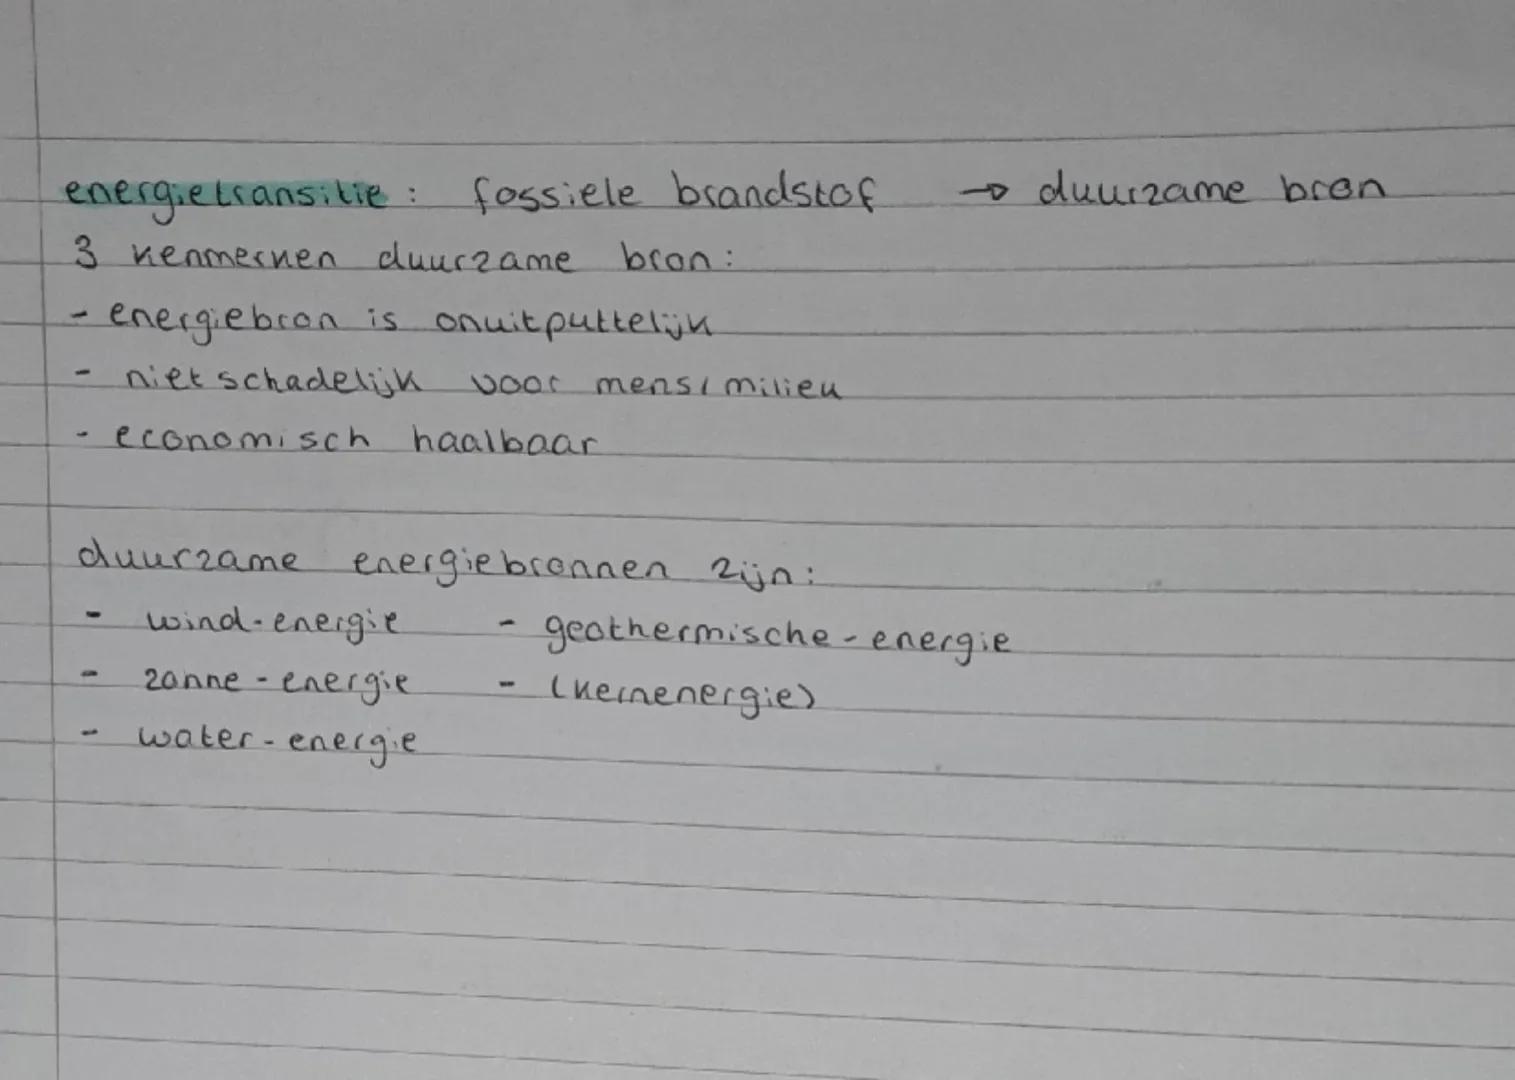 energietransitie : fossiele brandstof → duurzame bron
3 kenmerken duurzame bron :
- energiebron is onuitputtelijk
- niet schadelijk voor mens/milieu
- economisch haalbaar
duurzame energiebronnen zijn :
- wind-energie - geothermische-energie
- zonne-energie - (kernenergie)
- water-energie